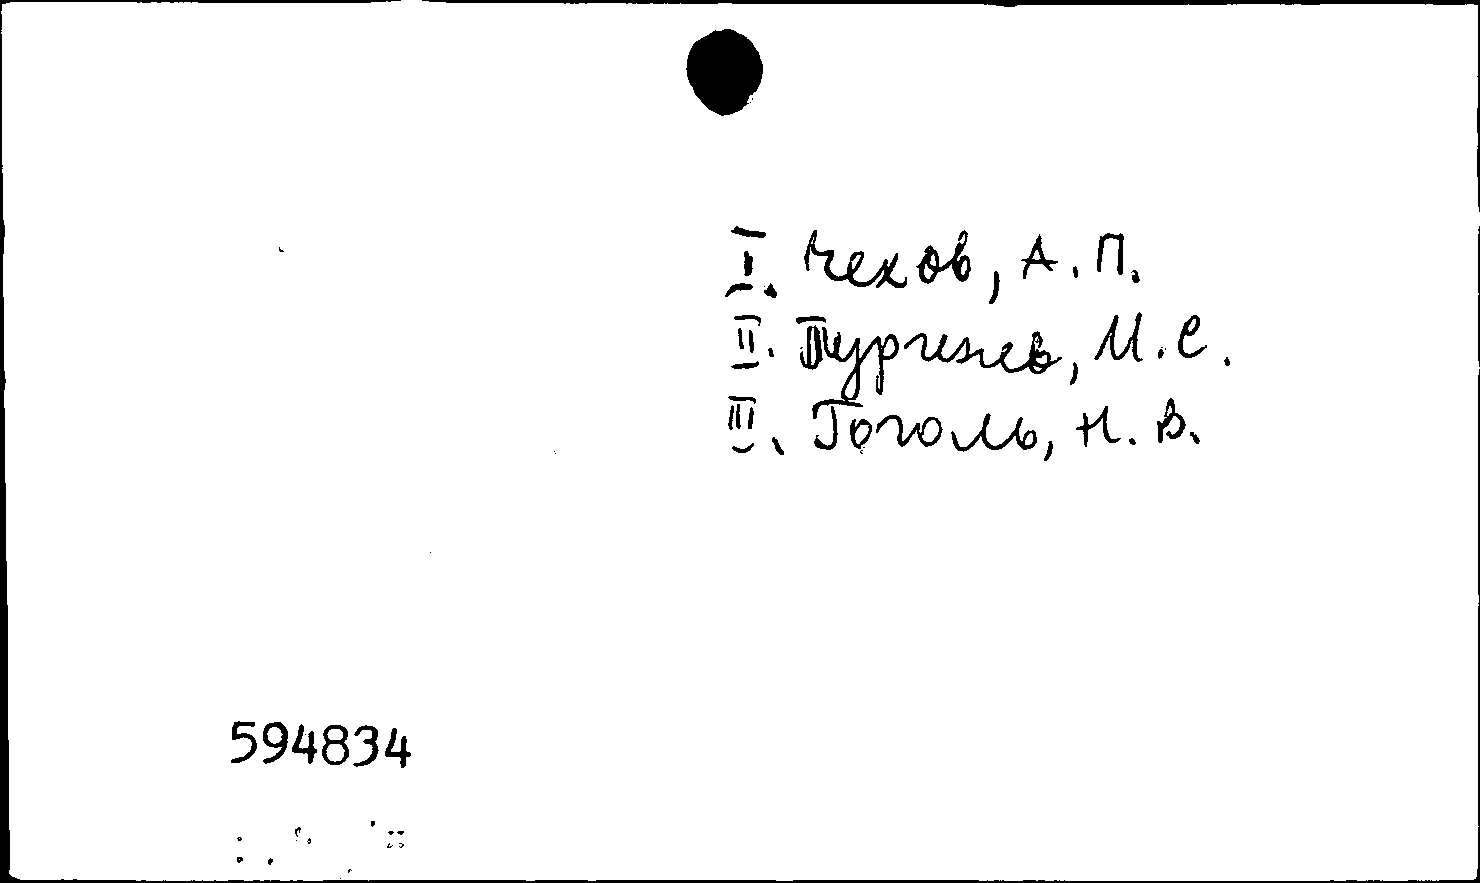 I. Чехов, А. П.
II. Тургенев, И. С.
III. Гоголь, Н. В.
594834